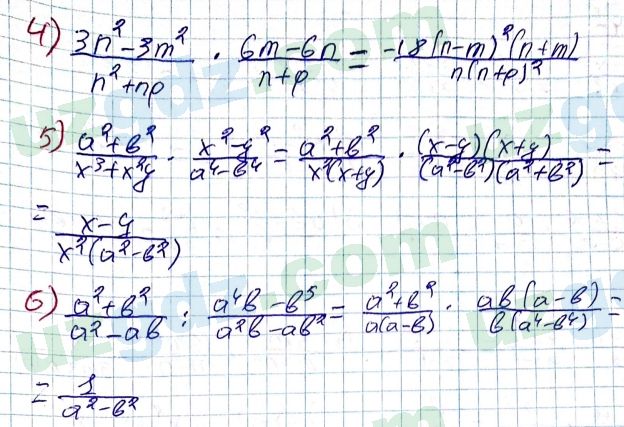 4) (3n² − 3m²)/(n² + np) · (6m − 6n)/(n + p) = (−18(n−m)²(n+m))/(n(n+p)²)
5) (a² + b²)/(x³ + x²y) · (x² − y²)/(a⁴ − b⁴) = (a² + b²)/(x²(x+y)) · ((x−y)(x+y))/((a²−b²)(a²+b²)) =
= (x − y)/(x²(a² − b²))
6) (a² + b²)/(a² − ab) : (a⁴b − b⁵)/(a²b − ab²) = (a² + b²)/(a(a−b)) · (ab(a−b))/(b(a⁴−b⁴)) =
= 1/(a² − b²)